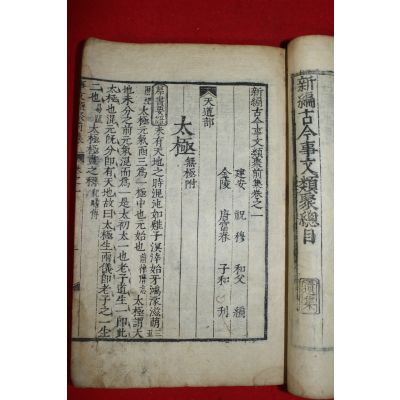 新編古今事文類聚總目
新編古今事文類聚前集卷之一
建安 祝穆 和父 編
金陵 唐富春 子和 刊
天道部
太極 無極附
群書要語 未有天地之時混沌如雞子溟涬始牙鴻濛滋萌三五
曆紀 太極元氣函三為一極中也元始也 前律曆志 太極謂天
地未分之前元氣混而為一是太初太一也老子道生一即此
太極也混元既分即有天地故曰太極生兩儀即老子之一生
二也 易疏 太極極盡之稱